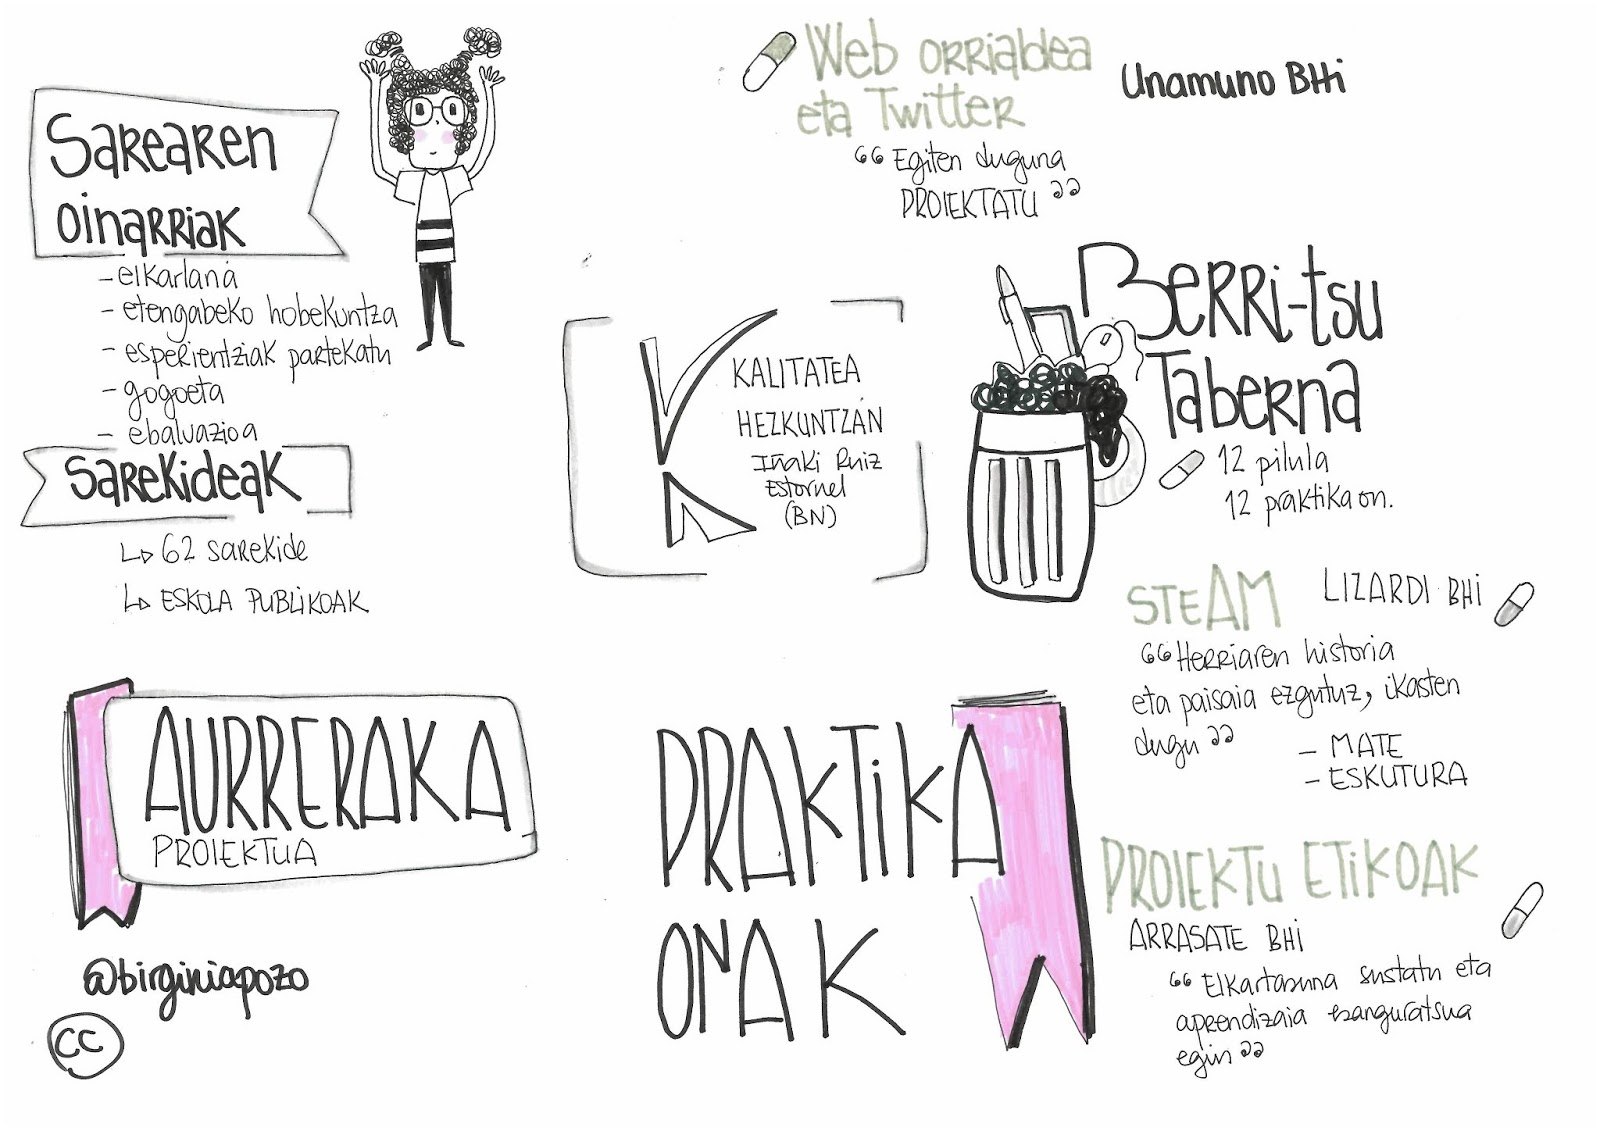 Sarearen
oinarriak
- elkarlana
- etengabeko hobekuntza
- esperientziak partekatu
- gogoeta
- ebaluazioa
Sarekideak
62 sarekide
ESKOLA PUBLIKOAK
AURRERAKA
PROIEKTUA
@birginiapozo
CC
KALITATEA
HEZKUNTZAN
Iñaki Ruiz
Estornel
(BN)
PRAKTIKA
ONAK
Web orrialdea
eta Twitter
Unamuno BHi
“Egiten duguna
PROIEKTATU”
Berri-tsu
Taberna
12 pilula
12 praktika on.
STEAM
LIZARDI BHI
“Herriaren historia
eta paisaia ezgutuz, ikasten
dugu”
- MATE
- ESKUTURA
PROIEKTU ETIKOAK
ARRASATE BHi
“Elkartasuna sustatu eta
aprendizaia esanguratsua
egin”